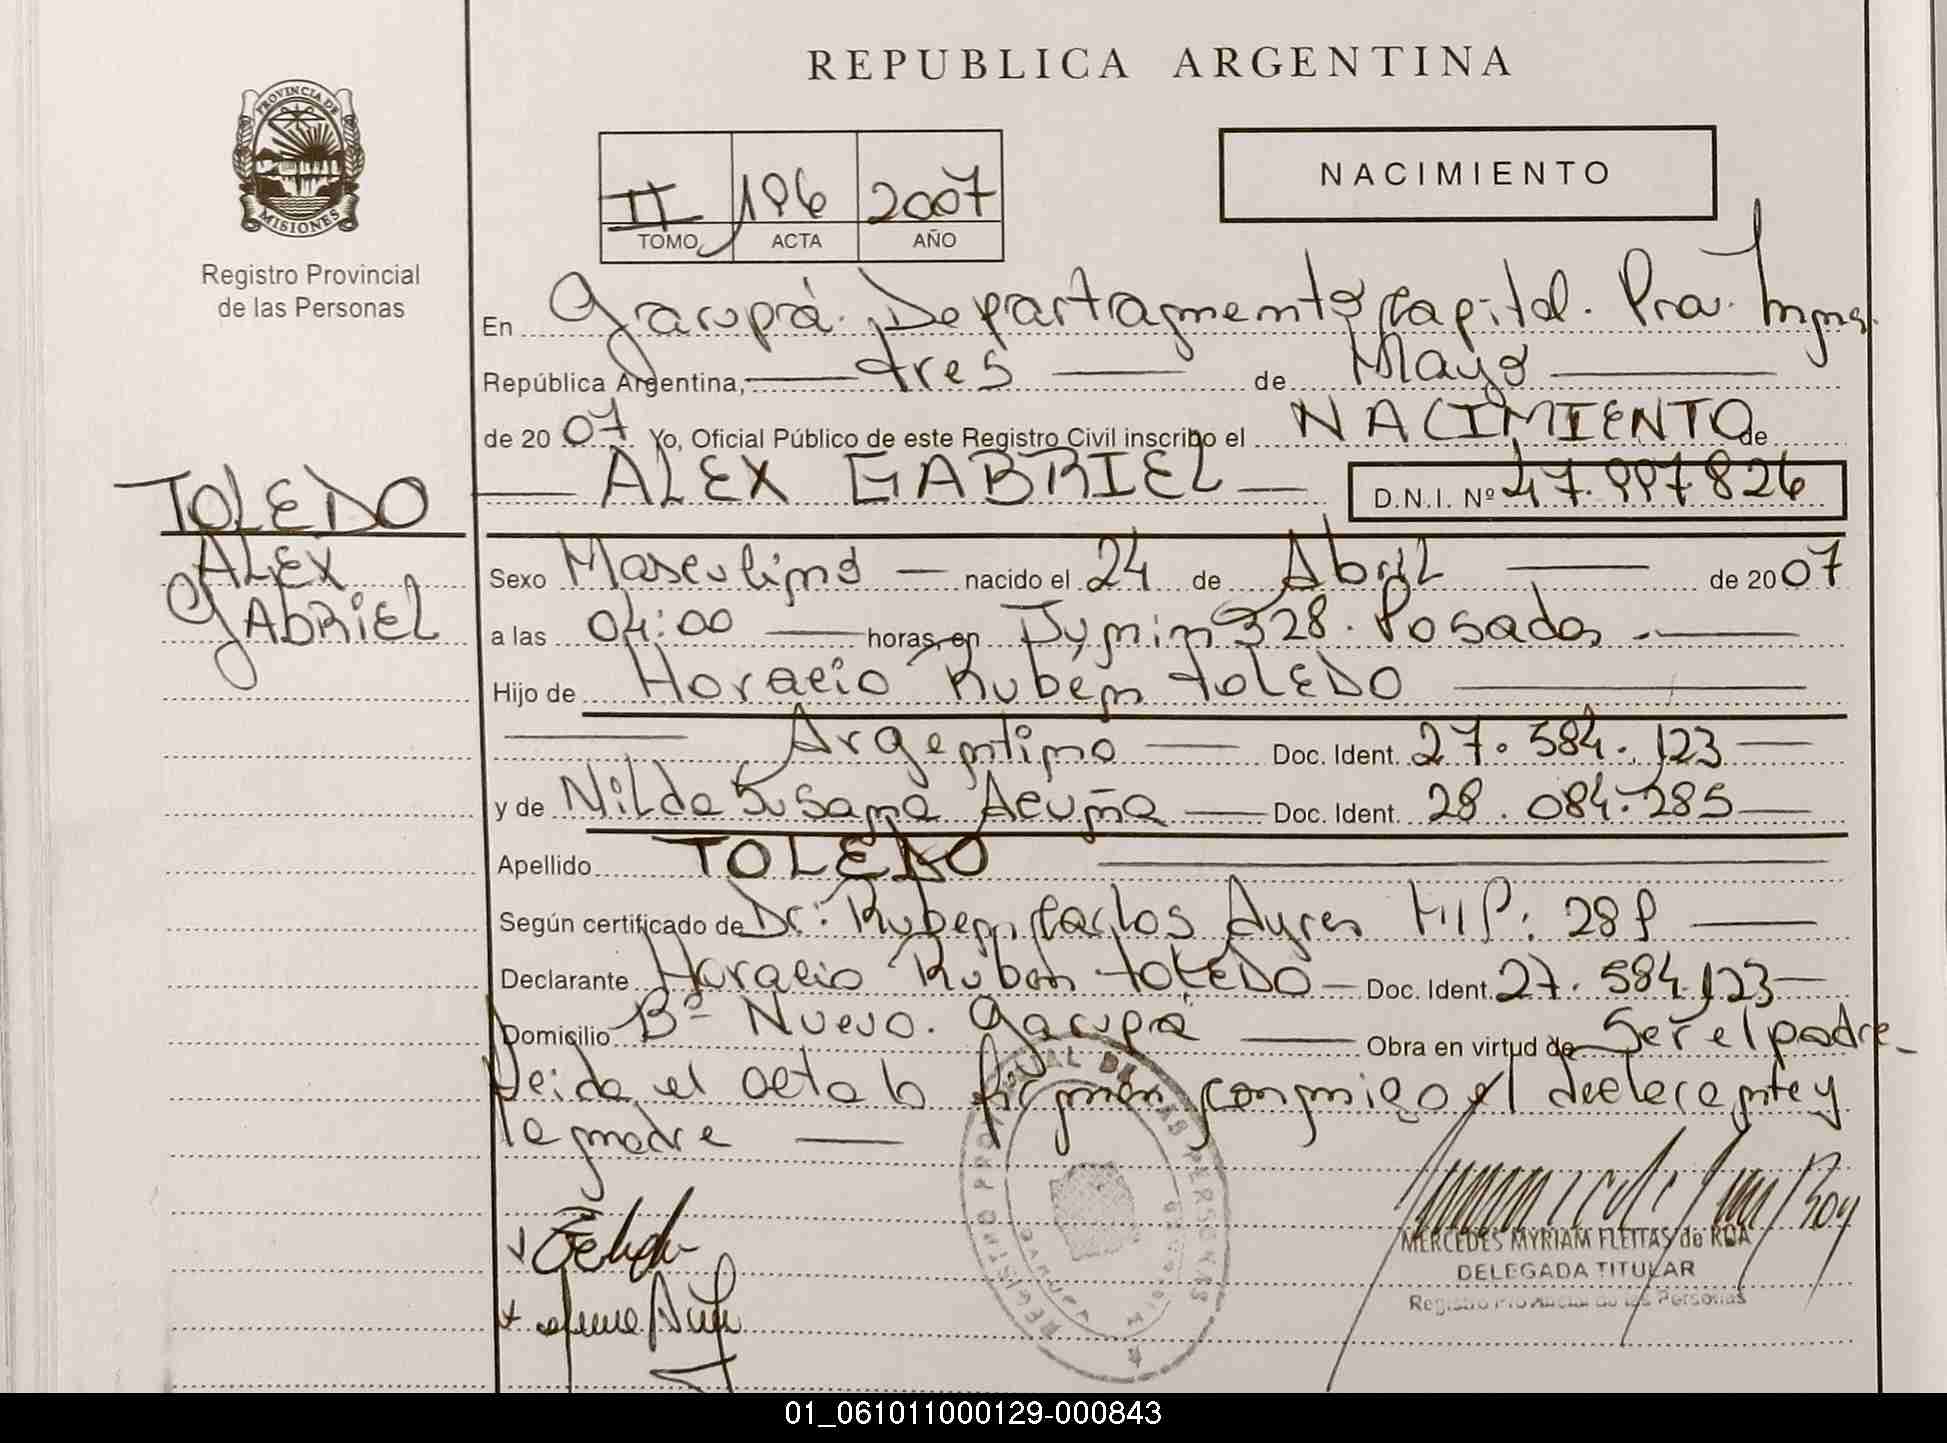 REPUBLICA ARGENTINA
PROVINCIA DE
MISIONES
Registro Provincial
de las Personas
II 196 2007
TOMO ACTA AÑO
NACIMIENTO
En Garupá. Departamento Capital. Prov. Mnes.
República Argentina, tres de Mayo
de 2007 Yo, Oficial Público de este Registro Civil inscribo el NACIMIENTO de
ALEX GABRIEL D.N.I. Nº 47.997.826
TOLEDO
ALEX
GABRIEL
Sexo Masculino nacido el 24 de Abril de 2007
a las 04:00 horas, en Junin 328. Posadas
Hijo de Horacio Ruben TOLEDO
Argentino Doc. Ident. 27.584.123
y de Nilda Susana Acuña Doc. Ident. 28.084.285
Apellido TOLEDO
Según certificado de Dr: Ruben Carlos Ayres M.P: 289
Declarante Horacio Ruben TOLEDO Doc. Ident. 27.584.123
Domicilio Bº Nuevo. Garupá Obra en virtud de Ser el padre
Leida el acta la firman conmigo el declarante y
la madre
REGISTRO PROVINCIAL DE LAS PERSONAS
MERCEDES MYRIAM FLEITAS de ROA
DELEGADA TITULAR
Registro Provincial de las Personas
01_061011000129-000843